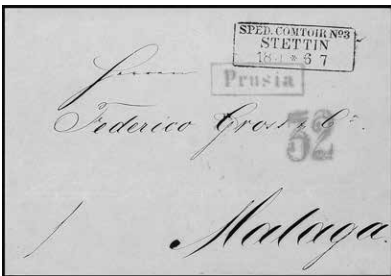 SPED. COMTOIR Nº3
STETTIN
6 7
Prusia
Herren
Federico Gross & Cº
32
Malaga.